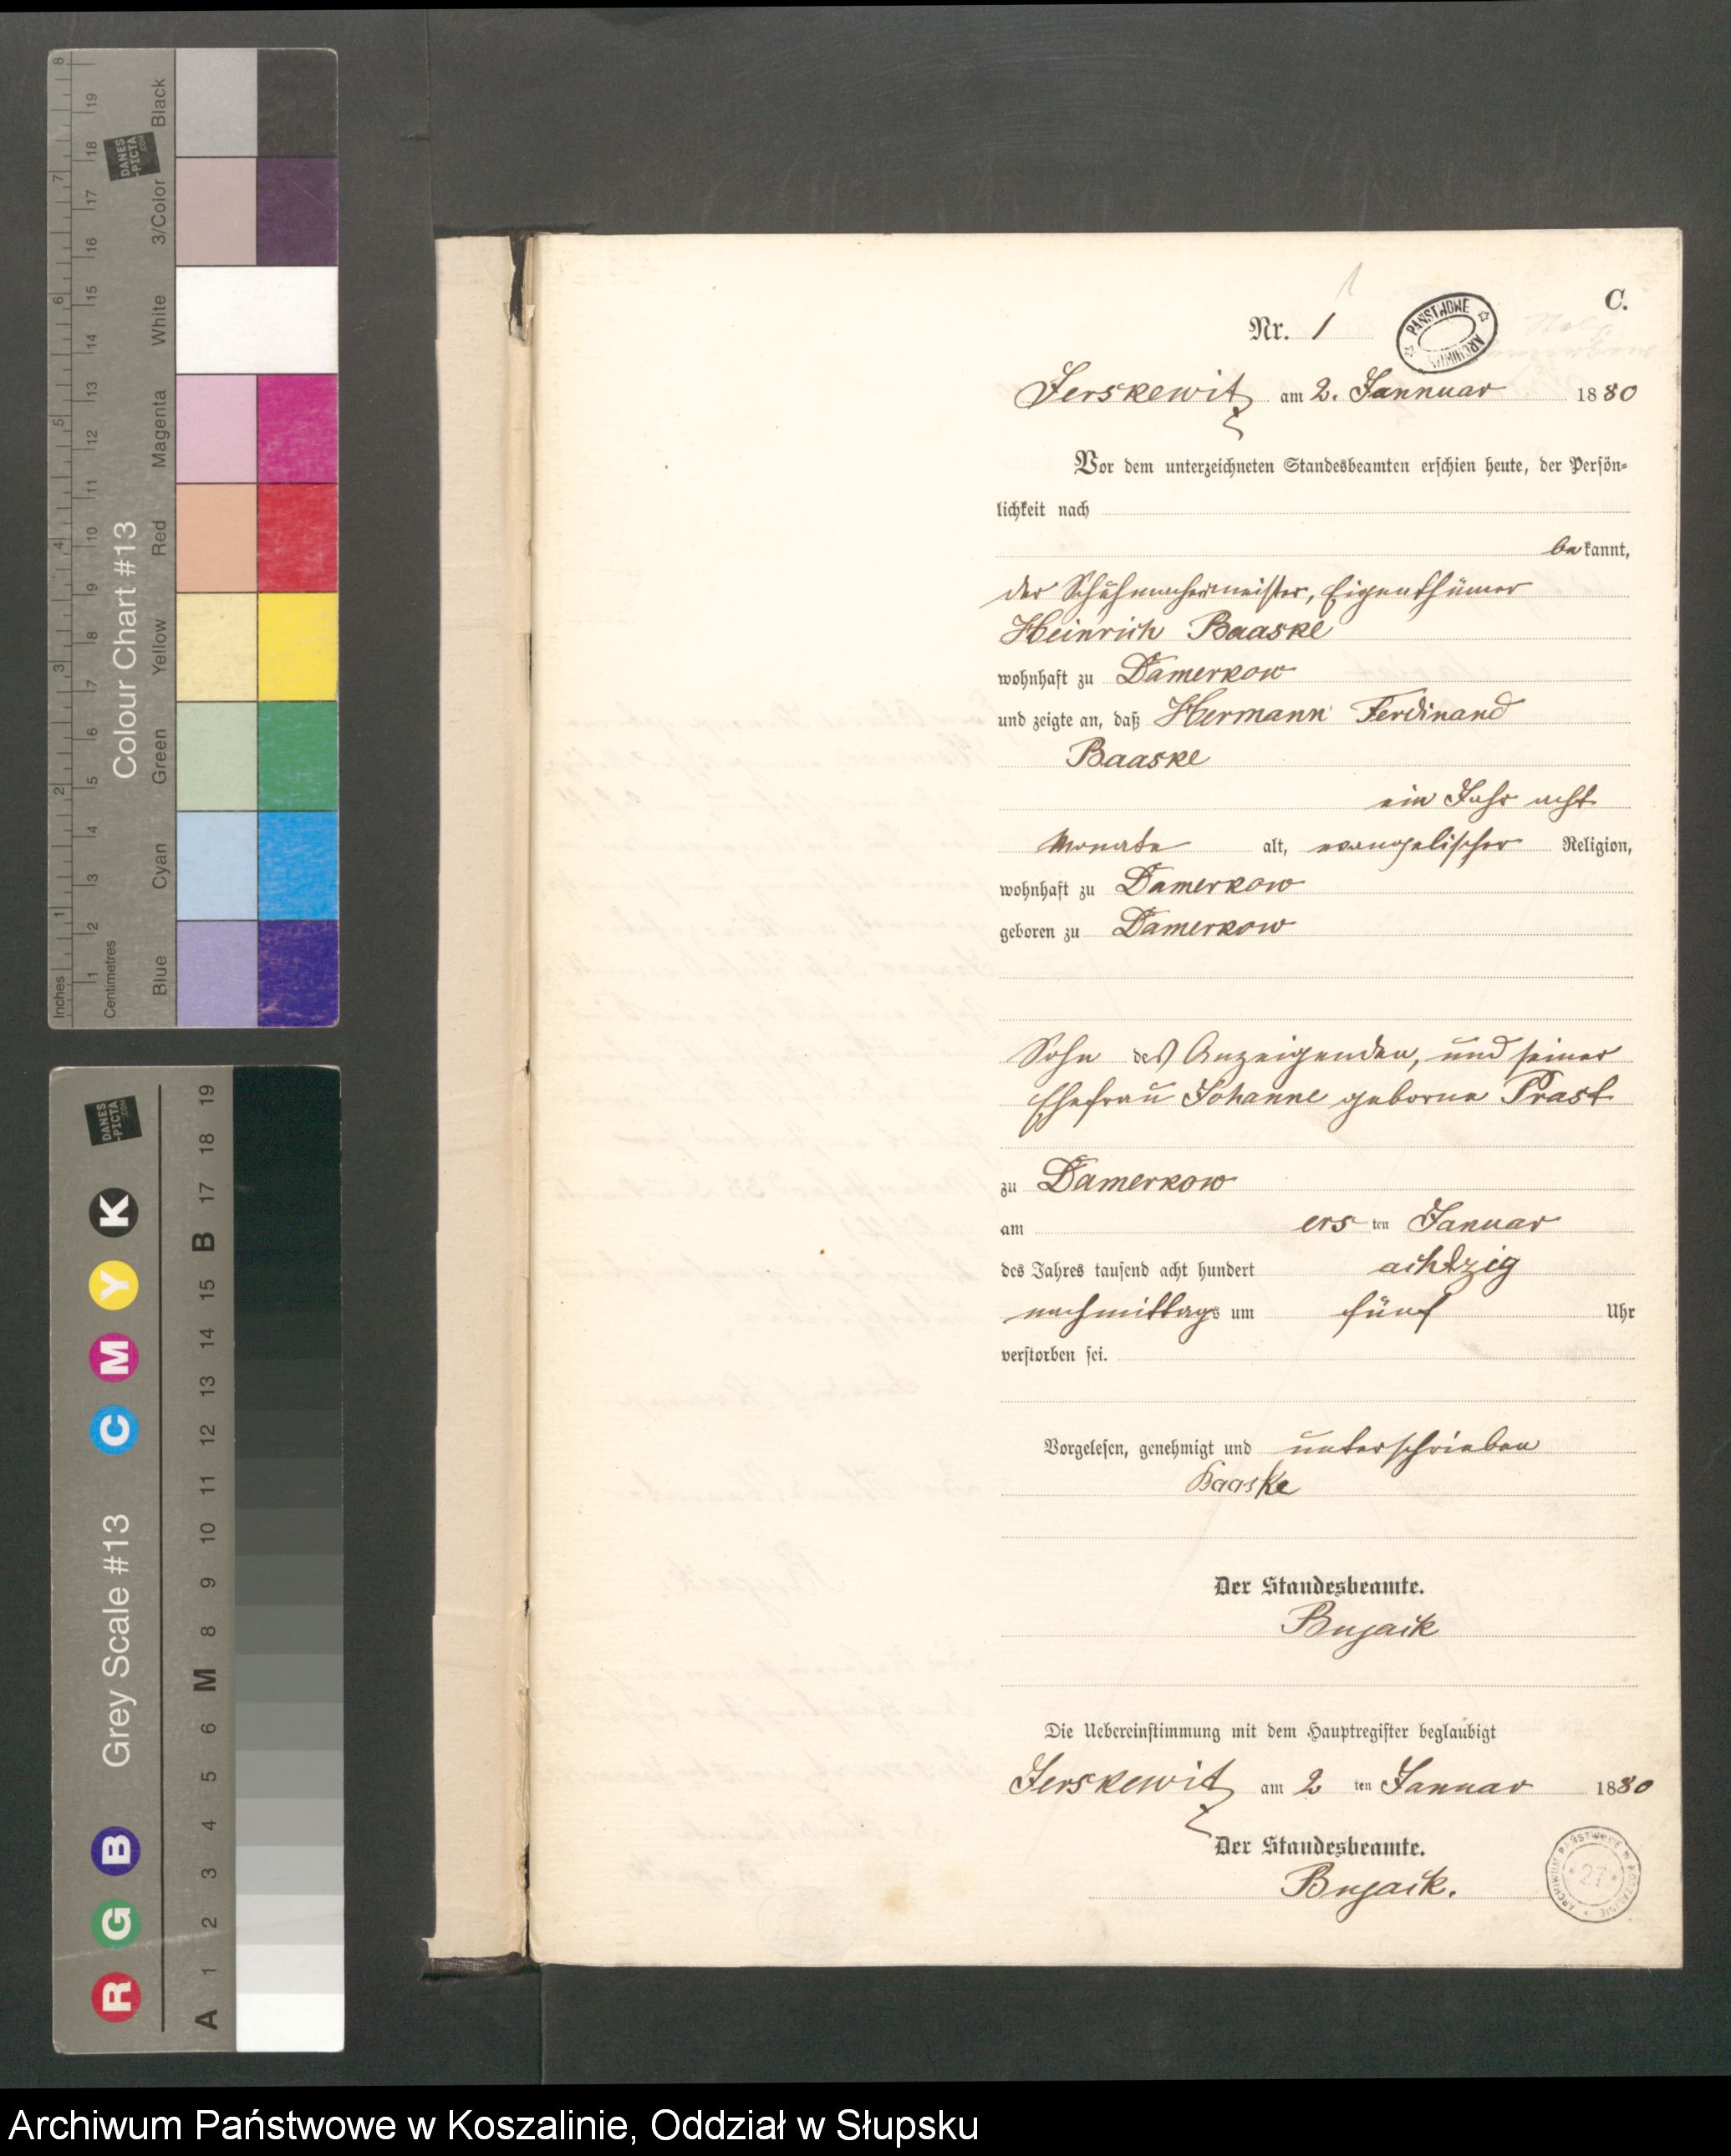 C.
Nr. 1
PAŃSTWOWE ARCHIWUM
Jerskewitz am 2. Jannuar 1880
Vor dem unterzeichneten Standesbeamten erschien heute, der Persön-
lichkeit nach
bekannt,
der Schuhmachermeister, Eigenthümer
Heinrich Baaske
wohnhaft zu Damerkow
und zeigte an, daß Hermann Ferdinand
Baaske
ein Jahr acht
Monate alt, evangelischer Religion,
wohnhaft zu Damerkow
geboren zu Damerkow
Sohn des Anzeigenden, und seiner
Ehefrau Johanne geborne Prast
zu Damerkow
am ersten Januar
des Jahres tausend acht hundert achtzig
nachmittags um fünf Uhr
verstorben sei.
Vorgelesen, genehmigt und unterschrieben
Baaske
Der Standesbeamte.
Bujack
Die Uebereinstimmung mit dem Hauptregister beglaubigt
Jerskewitz am 2 ten Januar 1880
Der Standesbeamte.
Bujack.
ARCHIWUM PAŃSTWOWE W KOSZALINIE
27
Inches 1 2 3 4 5 6 7 8
Centimetres 1 2 3 4 5 6 7 8 9 10 11 12 13 14 15 16 17 18 19
Colour Chart #13
Blue Cyan Green Yellow Red Magenta White 3/Color Black
DANES
-PICTA
.COM
R G B Grey Scale #13 C M Y K
DANES
-PICTA
.COM
A 1 2 3 4 5 6 M 8 9 10 11 12 13 14 15 B 17 18 19
Archiwum Państwowe w Koszalinie, Oddział w Słupsku